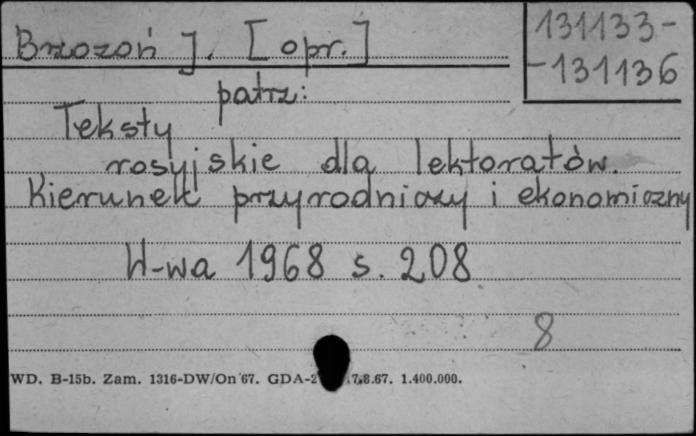 Brzozoń J. [opr.]
131133-
-131136
patrz:
Teksty
rosyjskie dla lektoratów.
Kierunek przyrodniczy i ekonomiczny
W-wa 1968 s. 208
8
WD. B-15b. Zam. 1316-DW/On 67. GDA-2 7.8.67. 1.400.000.